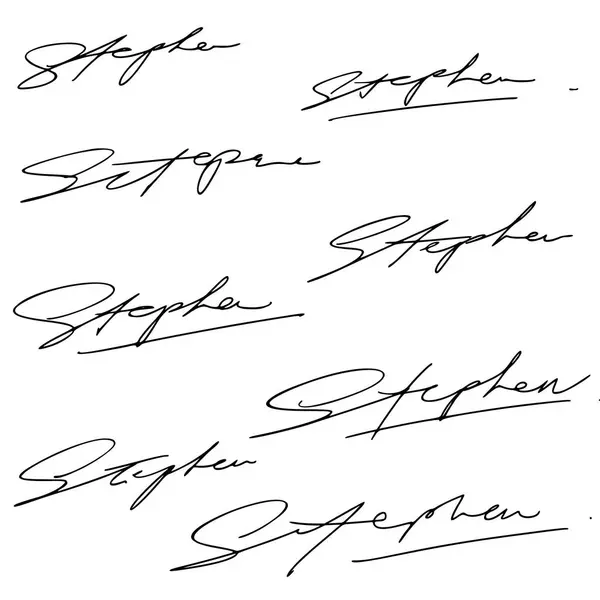 Stephen
Stephen
Stephen
Stephen
Stephen
Stephen
Stephen
Stephen